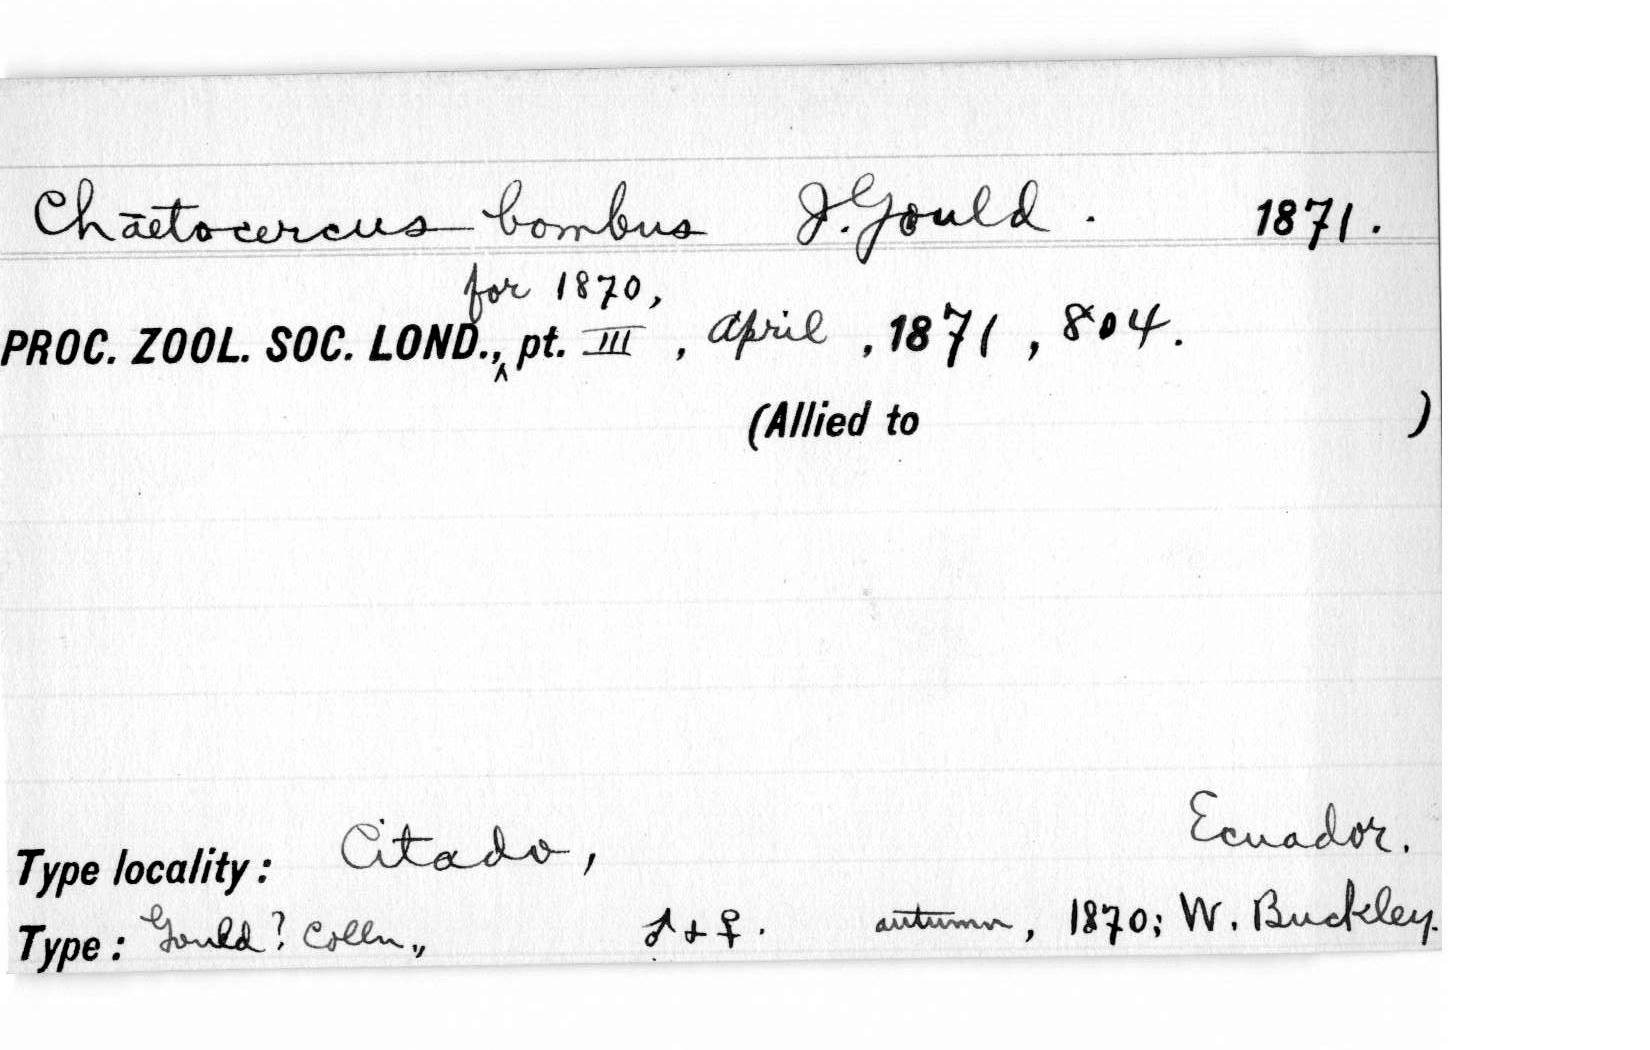 Chaetocercus bombus J. Gould. 1871.
for 1870,
PROC. ZOOL. SOC. LOND., ^ pt. III, April, 1871, 804.
(Allied to )
Type locality: Citado, Ecuador.
Type: Gould? Colln., ♂ + ♀. autumn, 1870; W. Buckley.